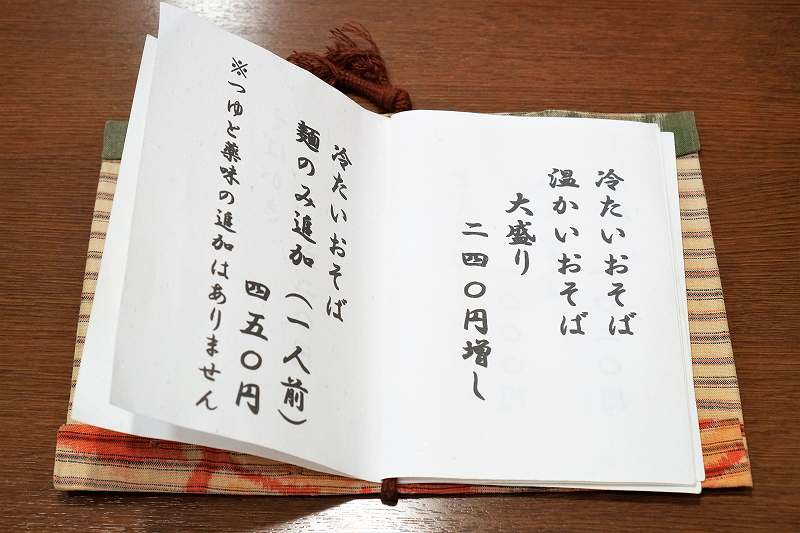 冷たいおそば
温かいおそば
大盛り
二四〇円増し
冷たいおそば
麺のみ追加（一人前）
四五〇円
※つゆと薬味の追加はありません